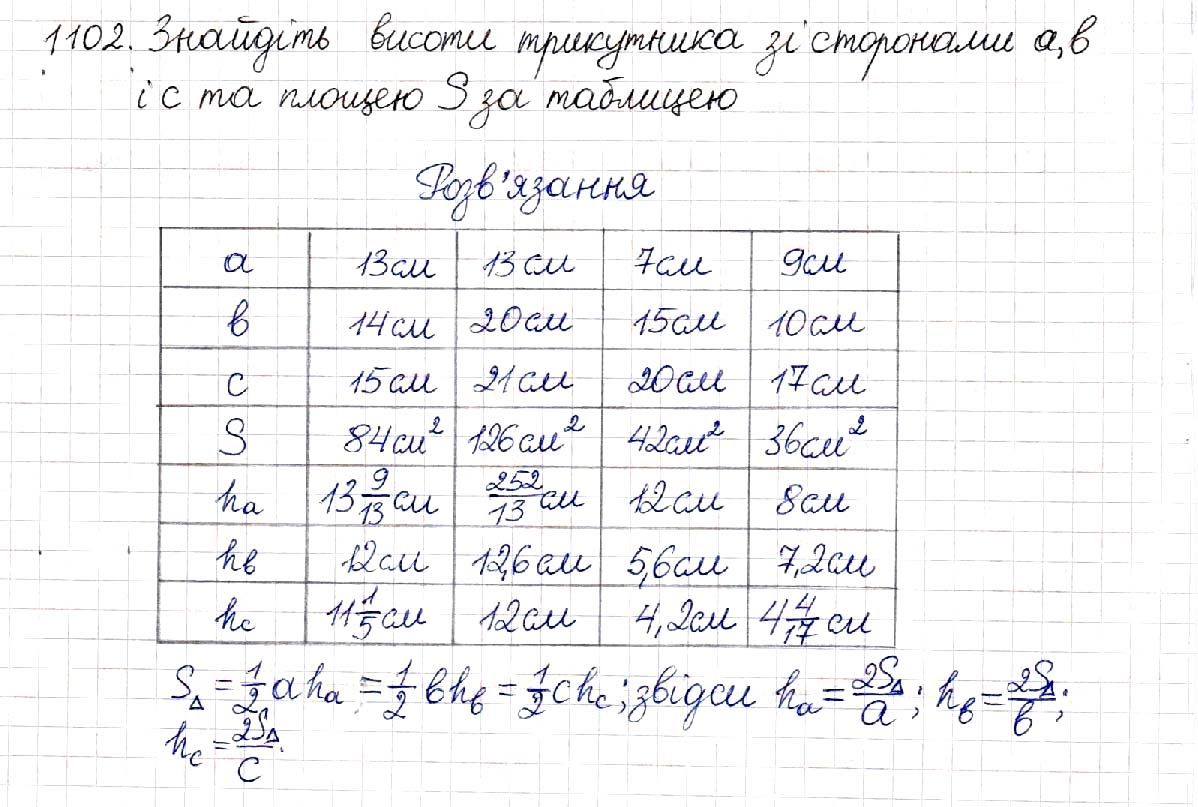 1102. Знайдіть висоти трикутника зі сторонами а, в
і с та площею S за таблицею
Розв'язання
а 13см 13см 7см 9см
в 14см 20см 15см 10см
с 15см 21см 20см 17см
S 84см² 126см² 42см² 36см²
hа 13 9/13 см 252/13 см 12см 8см
hв 12см 12,6см 5,6см 7,2см
hс 11 1/5 см 12см 4,2см 4 4/17 см
S△ = 1/2 ahа = 1/2 вhв = 1/2 chс; звідси hа = 2S△/а; hв = 2S△/в;
hс = 2S△/с.